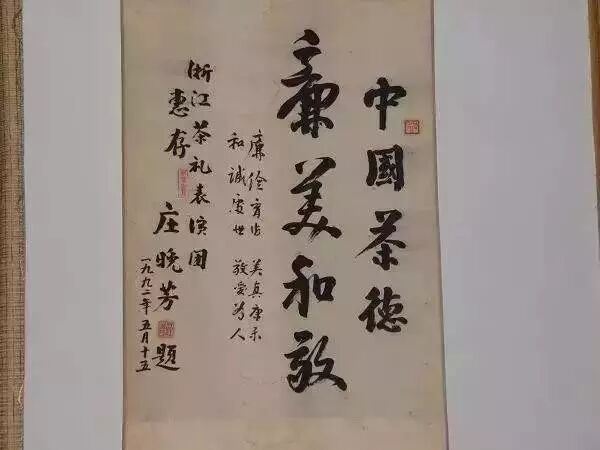 中國茶德
廉美和敬
廉俭育德 美真康乐
和誠處世 敬愛為人
浙江茶礼表演团
惠存
庄晚芳題
一九九二年五月十五